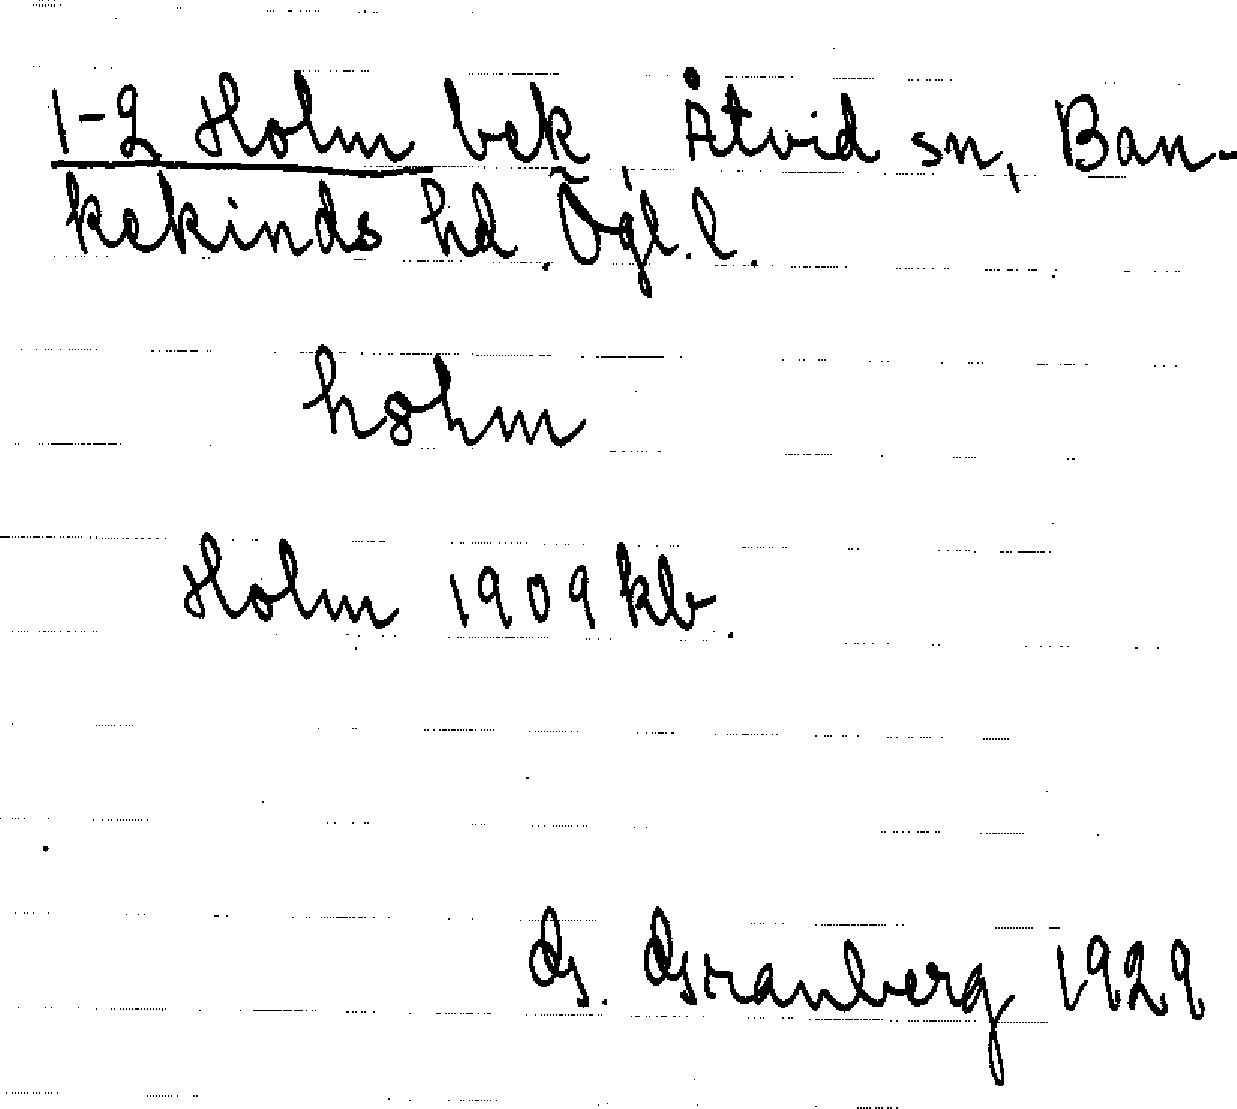 1-2 Holm bek, Åtvid sn, Ban-
kekinds hd. Ögl. l.
hȯlm
Holm 1909 kb.
G. Granberg 1929